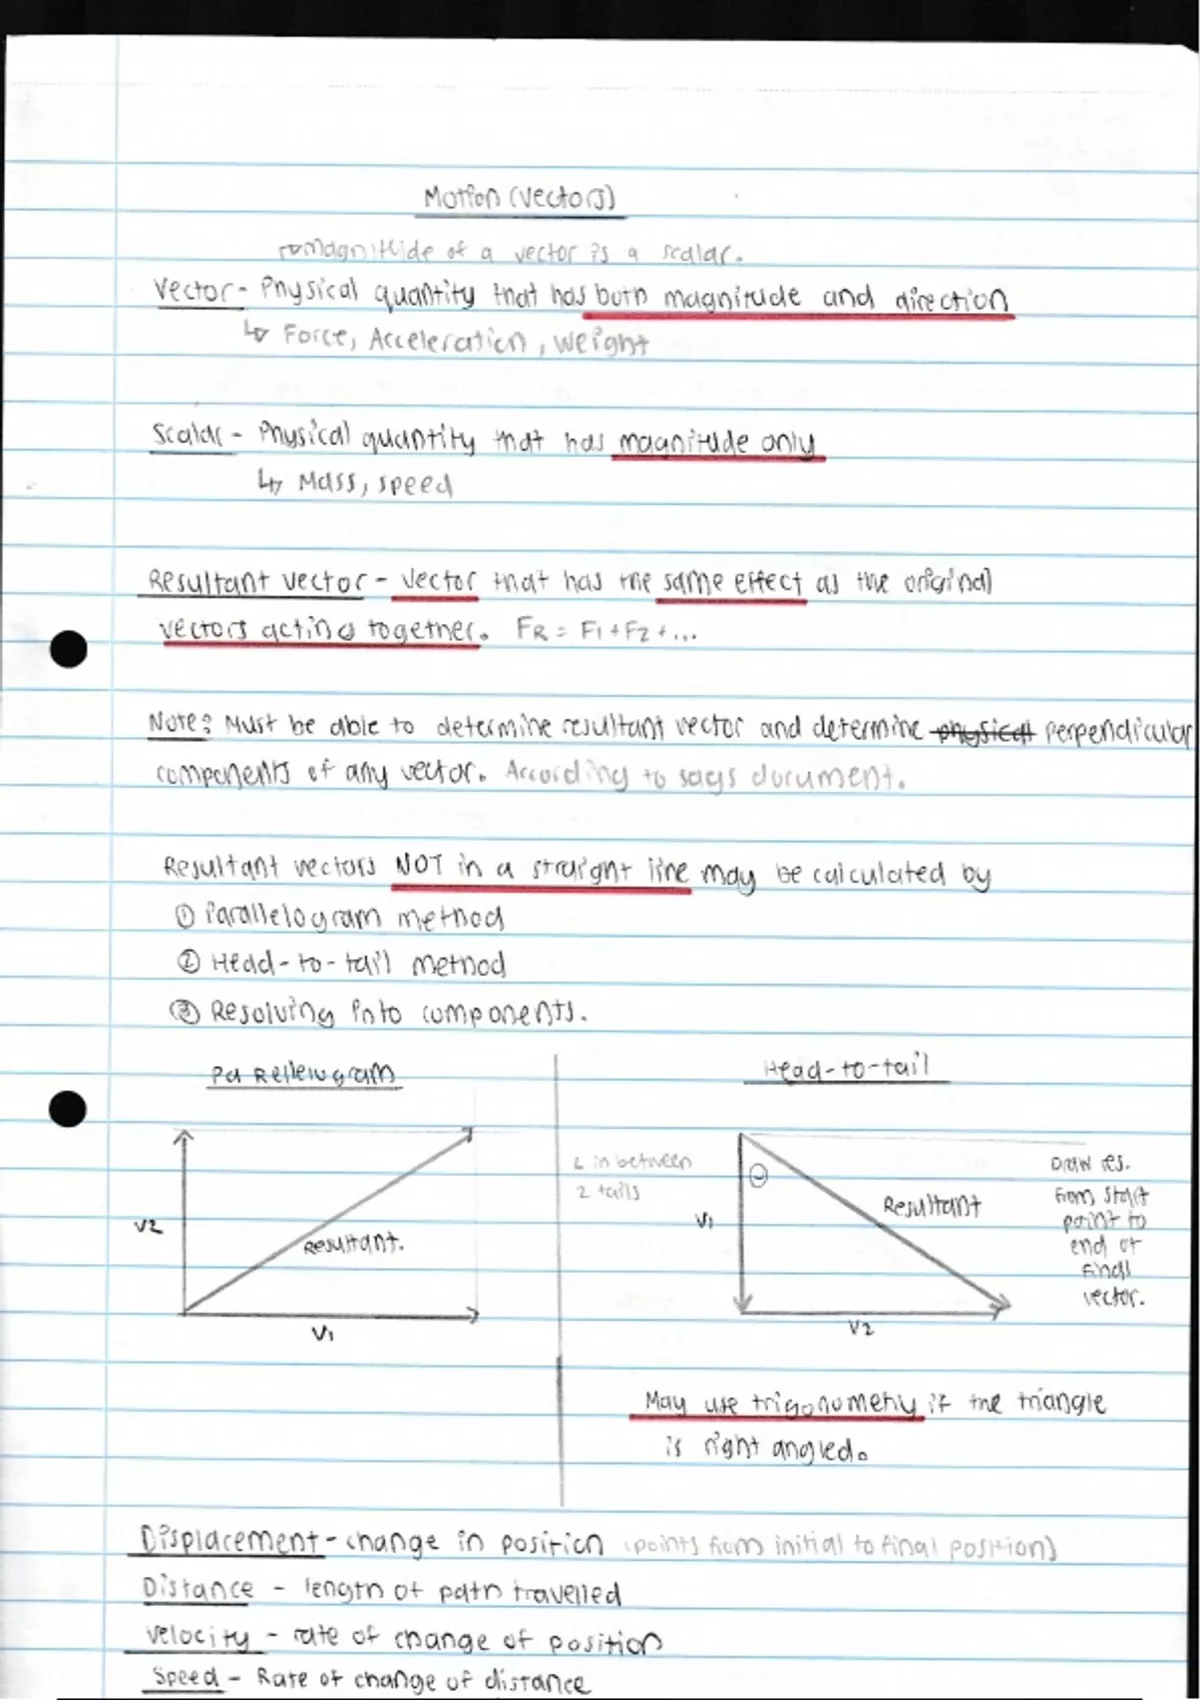 Motion (Vectors)
↳ Magnitude of a vector is a scalar.
Vector - Physical quantity that has both magnitude and direction
↳ Force, Acceleration, Weight
Scalar - Physical quantity that has magnitude only
↳ Mass, speed
Resultant vector - Vector that has the same effect as the original
vectors acting together. FR = F1 + F2 + ...
Note: Must be able to determine resultant vector and determine physical perpendicular
components of any vector. According to sags document.
Resultant vectors NOT in a straight line may be calculated by
① Parallelogram method
② Head-to-tail method
③ Resolving into components.
Parellelogram
Head-to-tail
V2
Resultant.
V1
∠ in between
2 tails
V1
Θ
Resultant
V2
Draw res.
from start
point to
end of
final
vector.
May use trigonometry if the triangle
is right angled.
Displacement - change in position (points from initial to final position)
Distance - length of path travelled
Velocity - rate of change of position
Speed - Rate of change of distance